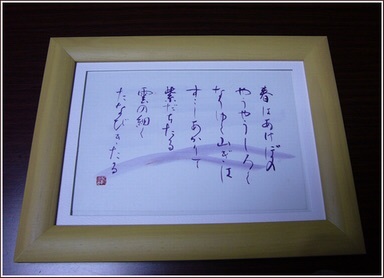 春はあけぼの
やうやうしろく
なりゆく山ぎは
すこしあかりて
紫だちたる
雲の細く
たなびきたる